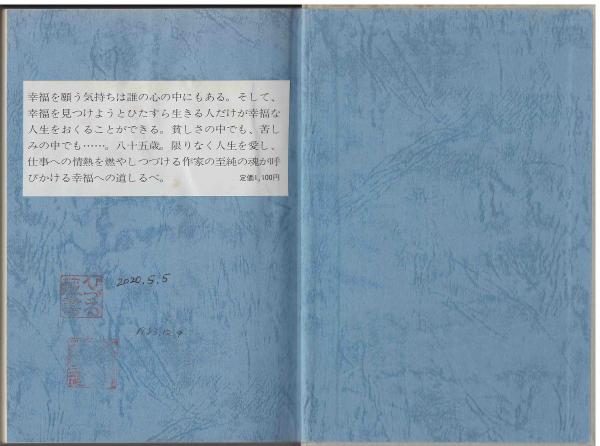 幸福を願う気持ちは誰の心の中にもある。そして、
幸福を見つけようとひたすら生きる人だけが幸福な
人生をおくることができる。貧しさの中でも、苦し
みの中でも……。八十五歳。限りなく人生を愛し、
仕事への情熱を燃やしつづける作家の至純の魂が呼
びかける幸福への道しるべ。
定価1,100円
2020.5.5